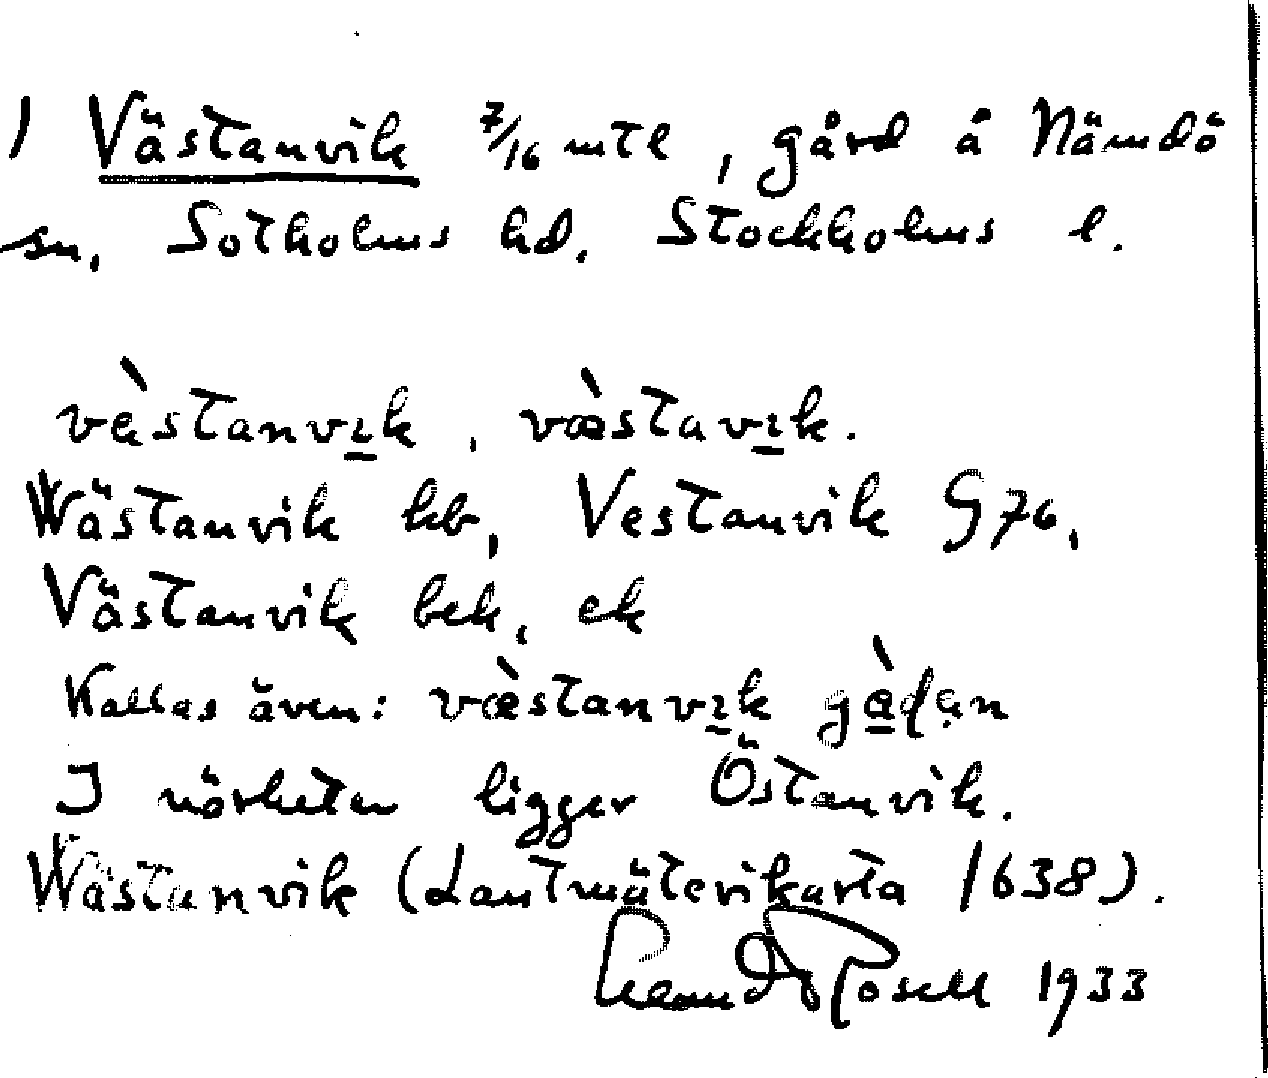 1 Västanvik 7/16 mtl, gård å Nämdö
sn, Sotholms hd. Stockholms l.
vàstanvik, væ̀stavik.
Wästanvik kb, Vestanvik G76,
Västanvik bek, ek
Kallas även: væ̀stanvik gàḍạn
I närheten ligger Östanvik.
Wästanvik (Lantmäterikarta 1638).
Rosell 1933